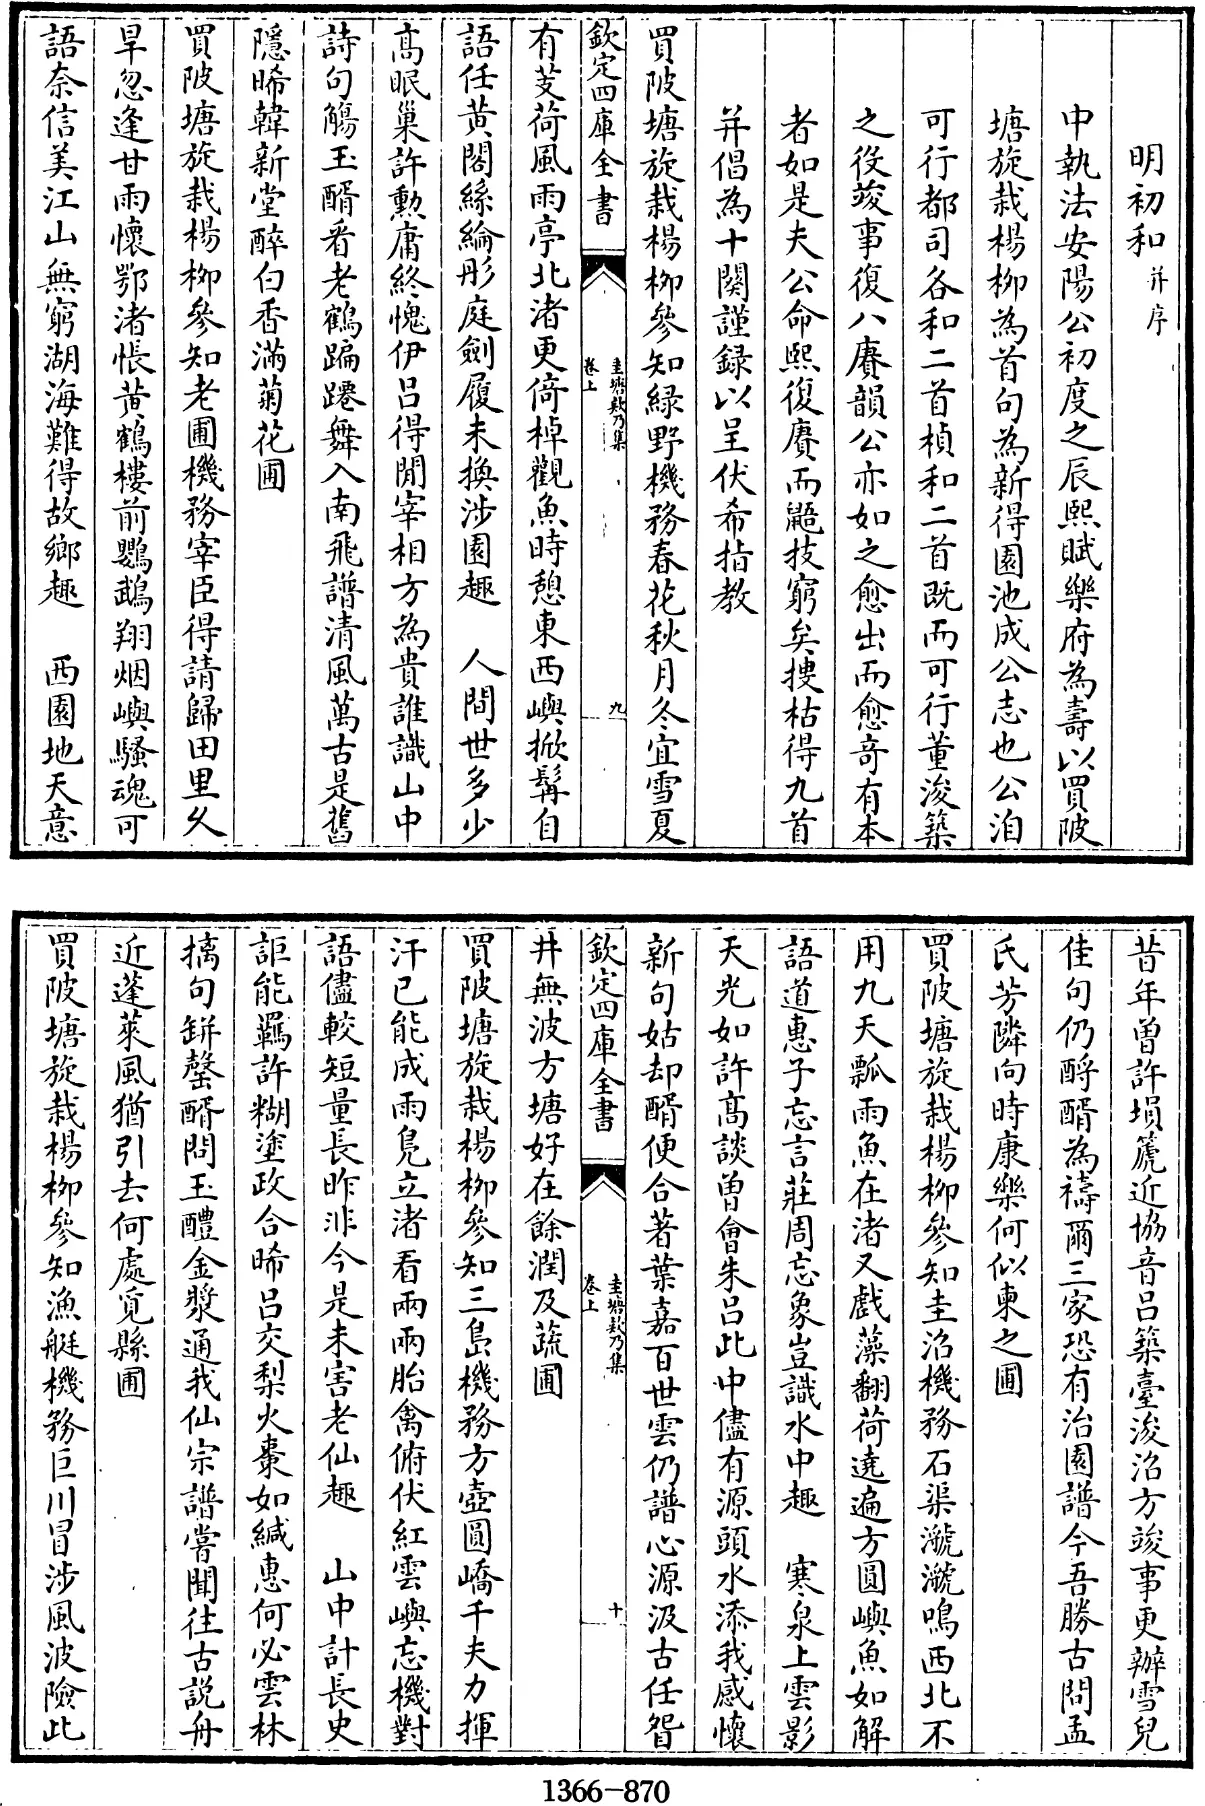 明初和并序
中執法安陽公初度之辰熙賦樂府為壽以買陂
塘旋栽楊柳為首句為新得園池成公志也公洎
可行都司各和二首楨和二首既而可行董浚築
之役竣事復八賡韻公亦如之愈出而愈奇有本
者如是夫公命熙復賡而鼯技窮矣捜枯得九首
并倡為十闋謹録以呈伏希指教
買陂塘旋栽楊柳參知緑野機務春花秋月冬宜雪夏
欽定四庫全書
圭塘欸乃集
卷上
九
有芰荷風雨亭北渚更倚棹觀魚時憩東西嶼掀髯自
語任黄閣絲綸彤庭劍履未換涉園趣 人間世多少
高眠巢許勲庸終愧伊吕得閒宰相方為貴誰識山中
詩句觴玉醑看老鶴蹁蹮舞入南飛譜清風萬古是舊
隱晞韓新堂醉白香滿菊花圃
買陂塘旋栽楊柳參知老圃機務宰臣得請歸田里久
旱忽逢甘雨懷鄂渚悵黄鶴樓前鸚鵡翔烟嶼騷魂可
語奈信美江山無窮湖海難得故鄉趣 西園地天意
昔年曾許塤篪近協音吕築臺浚沼方竣事更辦雪兒
佳句仍酹醑為禱爾三家恐有治園譜今吾勝古問孟
氏芳隣向時康樂何似東之圃
買陂塘旋栽楊柳參知圭沼機務石渠㶁㶁鳴西北不
用九天瓢雨魚在渚又戲藻翻荷遶遍方圓嶼魚如解
語道惠子忘言莊周忘象豈識水中趣 寒泉上雲影
天光如許高談曽會朱吕此中儘有源頭水添我感懷
新句姑却醑便合著葉嘉百世雲仍譜心源汲古任眢
欽定四庫全書
圭塘欸乃集
卷上
十
井無波方塘好在餘潤及蔬圃
買陂塘旋栽楊柳參知三島機務方壺圓嶠千夫力揮
汗已能成雨鳬立渚看兩兩胎禽俯伏紅雲嶼忘機對
語儘較短量長昨非今是未害老仙趣 山中計長史
詎能羈許糊塗政合晞吕交梨火棗如緘惠何必雲林
摛句缾罄醑問玉醴金漿通我仙宗譜嘗聞往古説舟
近蓬萊風猶引去何處覓縣圃
買陂塘旋栽楊柳參知漁艇機務巨川冒涉風波險此
1366-870